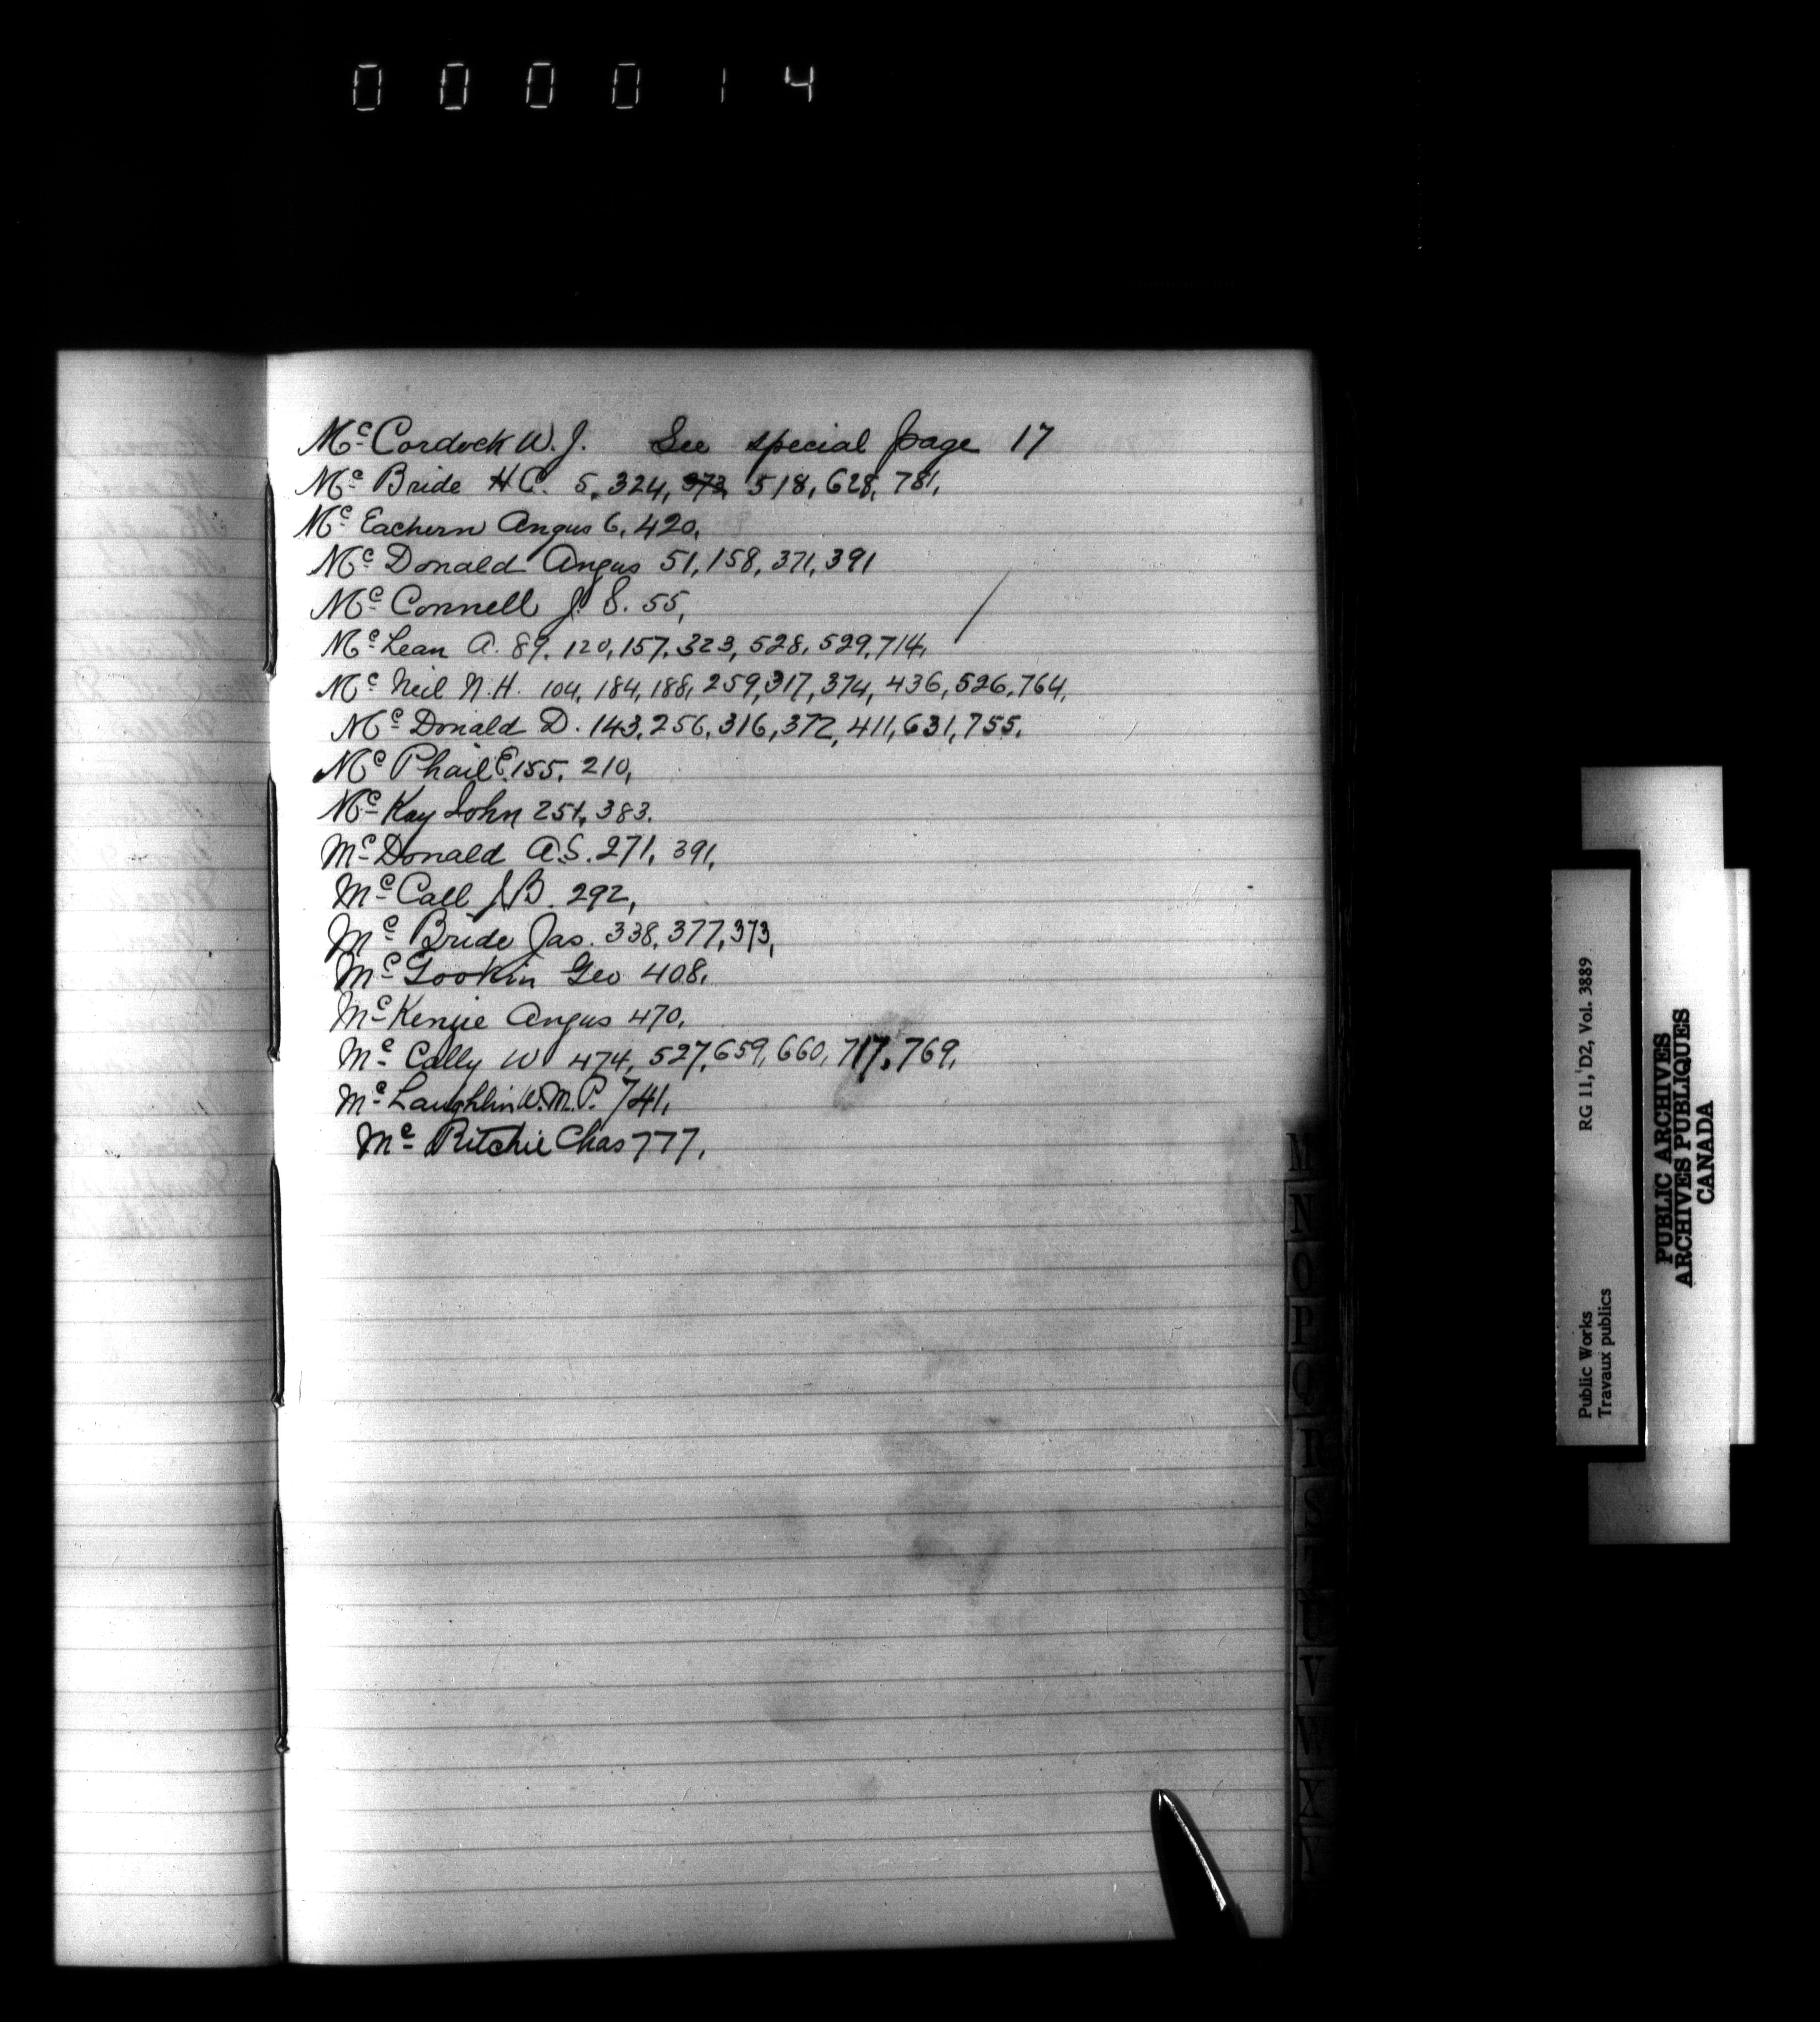 000014
McCordock W. J. See special page 17
Mc Bride H C. 5, 324, 373, 518, 628, 781,
Mc Eachern Angus 6, 420,
Mc Donald Angus 51, 158, 371, 391
Mc Connell J. S. 55,
McLean A. 89, 120, 157, 323, 528, 529, 714,
Mc Neil N. H. 104, 184, 188, 259, 317, 374, 436, 526, 764,
Mc Donald D. 143, 256, 316, 372, 411, 631, 755,
Mc Phail E. 155, 210,
Mc Kay John 251, 383.
McDonald A.S. 271, 391,
Mc Call J B. 292,
Mc Bride Jas. 338, 377, 373,
Mc Gookin Geo 408,
McKenzie Angus 470,
Mc Cally W 474, 527, 659, 660, 717, 769,
Mc Laughlin W. M. P. 741,
Mc Ritchie Chas 777,
M
N
O
P
Q
R
S
T
U
V
W
X
Public Works RG 11, D2, Vol. 3889
Travaux publics
PUBLIC ARCHIVES
ARCHIVES PUBLIQUES
CANADA